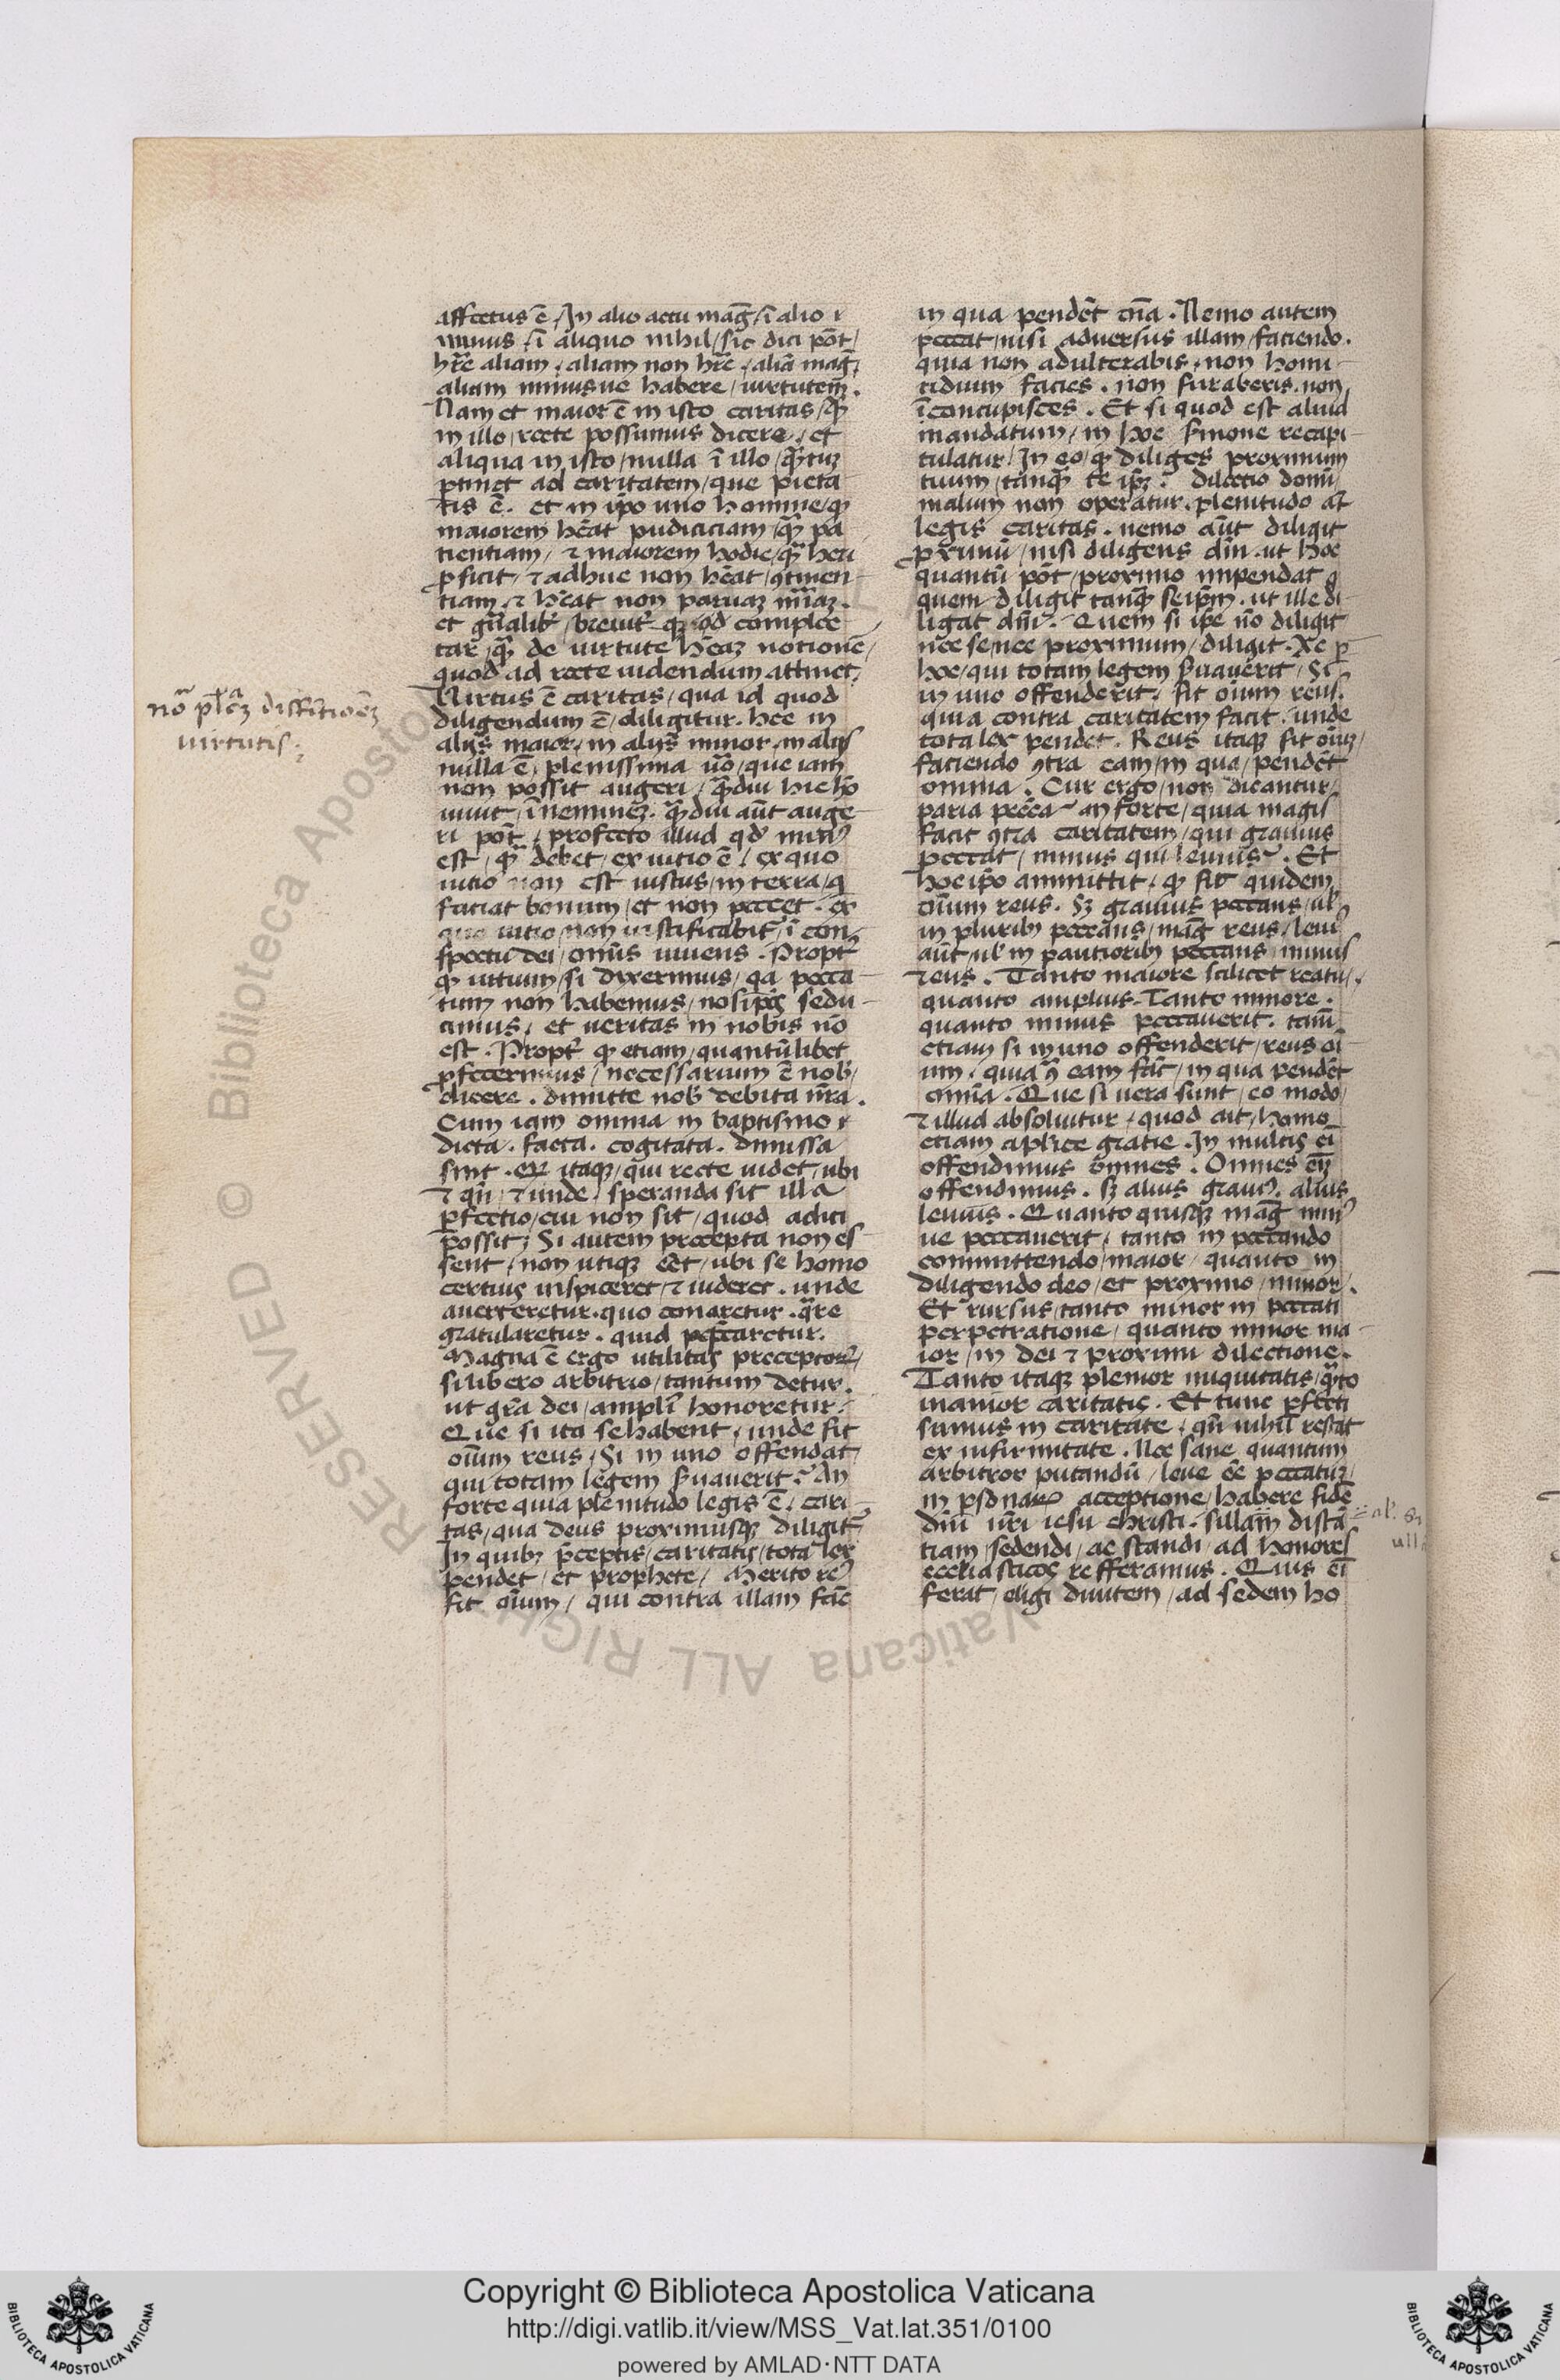 affectus ē / In alio actu maḡ / ī alio
minus / ī aliquo nihil / sic dici pōt /
hr̄e aliam / aliam non hr̄e / aliā maḡ /
aliam minusue habere / uirtutem̄ .
Nam et maior ē in isto caritas / qꝫ
in illo / recte possumus dicere / et
aliqua in isto / nulla ī illo / qꝫtuꝫ
ꝑtinet ad caritatem / que pieta
tis ē . et in ip̄o uno homine / qꝫ
maiorem hēat pudiciciam / qꝫ pa
tientiam / ⁊ maiorem hodie / qꝫ heri
ꝓficit / ⁊ adhuc non hēat / ꝯtinen
tiam / ⁊ hēat non paruaꝫ mīaꝫ .
et gn̄alit̄ / breuit̄ complec
tar / qꝫ de uirtute hēaꝫ notionē /
quod ad recte uidendum attinet /
Uirtus ē caritas / qua id quod
diligendum ē / diligitur . hec in
alijs maior / in alijs minor / in alijs
nulla ē / plenissima uō / que iam
non possit augeri / qꝫdiu hic hō
uiuit / ī nemineꝫ . qꝫdiu aūt auge
ri pōt / profecto illud qd̄ minꝰ
est / qꝫ debet / ex uitio ē / ex quo
uitio non est iustus / in terra / q̄
faciat bonum / et non peccet . ex
quo uitio / non iustificabit̄ / ī con
spectu dei / om̄is uiuens . Propt̄
qꝫ uitium / si dixerimus / qa pecca
tum non habemus / nosip̄os sedu
cimus / et ueritas in nobis nō
est . Propt̄ qꝫ etiam / quantūlibet
ꝓfecerimus / necessarium ē nob̄ /
dicere . dimitte nob̄ debita nr̄a .
Cum iam omnia in baptismo
dicta . facta . cogitata . dimissa
sint . itaqꝫ / qui recte uidet / ubi
⁊ qn̄ / ⁊ unde / speranda sit illa
ꝑfectio / cui non sit / quod adici
possit / Si autem precepta non es
sent / non utiqꝫ eēt / ubi se homo
certius inspiceret / ⁊ uideret . unde
auerteretur . quo conaretur . qre
gratularetur . quid p̄caretur .
Magna ē ergo utilitas preceptoꝝ /
si libero arbitrio / tantum detur .
ut gr̄a dei / ampli honoretur .
Que si ita se habent / unde fit
oīum reus / Si in uno offendat /
qui totam legem s̄uauerit ? An
forte quia plenitudo legis ē / cari
tas / qua deus proximusqꝫ diligit̄
In quibꝫ p̄ceptis / caritatis / tota lex
pendet / et prophete / Merito reꝰ
fit oīum / qui contra illam fac̄
nō pl̄caꝫ diffītionēꝫ
uirtutis ;
in qua pendēt om̄a . Nemo autem
peccat / nisi aduersus illam / faciendo .
quia non adulterabis . non homi
cidium facies . non furaberis . non
īcōncupisces . Et si quod est aliud
mandatum / in hoc s̄mone recapi
tulatur / In eo / qꝫ diliges proximum
tuum / tanqꝫ te ip̄ꝫ . Dilectio domī
malum non operatur . plenitudo aꝫ
legis caritas . nemo aūt diligit
ꝓximū / nisi diligens dm̄ . ut hoc
quantū pōt / proximo impendat
quem diligit tanqꝫ seip̄m . ut ille di
ligat dm̄ . Quem si ip̄e nō diligit
nec se / nec proximum / diligit . Ac ꝑ
hoc / qui totam legem s̄uauerit / Si
in uno offenderit / fit oīum reus /
quia contra caritatem facit . unde
tota lex pendet . Reus itaqꝫ fit oīuꝫ /
faciendo ꝯtra eam / in qua / pendēt
omnia . Cur ergo / non dicantur
paria pecc̄a ? an forte / quia magis
facit ꝯtra caritatem / qui grauius
peccat / minus qui leuius ? . Et
hoc ip̄o ammittit / qꝫ fit quidem
oīum reus . Sꝫ grauius peccans / ul̄
in pluribꝫ peccans / maḡ reus / leuiꝰ
aūt / ul̄ in pautioribꝫ peccans / minus
reus . Tanto maiore scilicet reatu / .
quanto amplius . Tanto minore .
quanto minus peccauerit . tam̄
etiam si in uno offenderit / reus oī
um / quia ꝯ eam fac̄ / in qua pendēt
omnia . Que si uera sunt / eo modo
⁊ illud absoluitur / quod ait / homo
etiam aplice gratie . In multis eī
offendimus omnes . Omnes eīꝫ
offendimus . sꝫ alius grauiꝰ . alius
leuius . Quanto quisqꝫ maḡ minꝰ
ue peccauerit / tanto in peccando
committendo / maior / quanto in
diligendo deo / et proximo / minor .
Et rursus / tanto minor in peccati
perpetratione / quanto minor ma
ior / in dei ⁊ proximi dilectione .
Tanto itaqꝫ plenior iniquitatis / qꝫto
inanior caritatis . Et tunc ꝑfecti
sumus in caritate / qn̄ nihil restat
ex infirmitate . Nec sane quantum
arbitror putandū / leue ēe peccatuꝫ
in ꝑsonaꝝ acceptione / habere fidē
dm̄i nr̄i iesu christi . sillam̄ distā
tiam / sedendi / ac standi / ad honores
ecclesiasticos refferamus . Quis eī
ferat / eligi diuitem / ad sedem ho
Copyright © Biblioteca Apostolica Vaticana
http://digi.vatlib.it/view/MSS_Vat.lat.351/0100
powered by AMLAD·NTT DATA
BIBLIOTECA APOSTOLICA VATICANA
BIBLIOTECA APOSTOLICA VATICANA